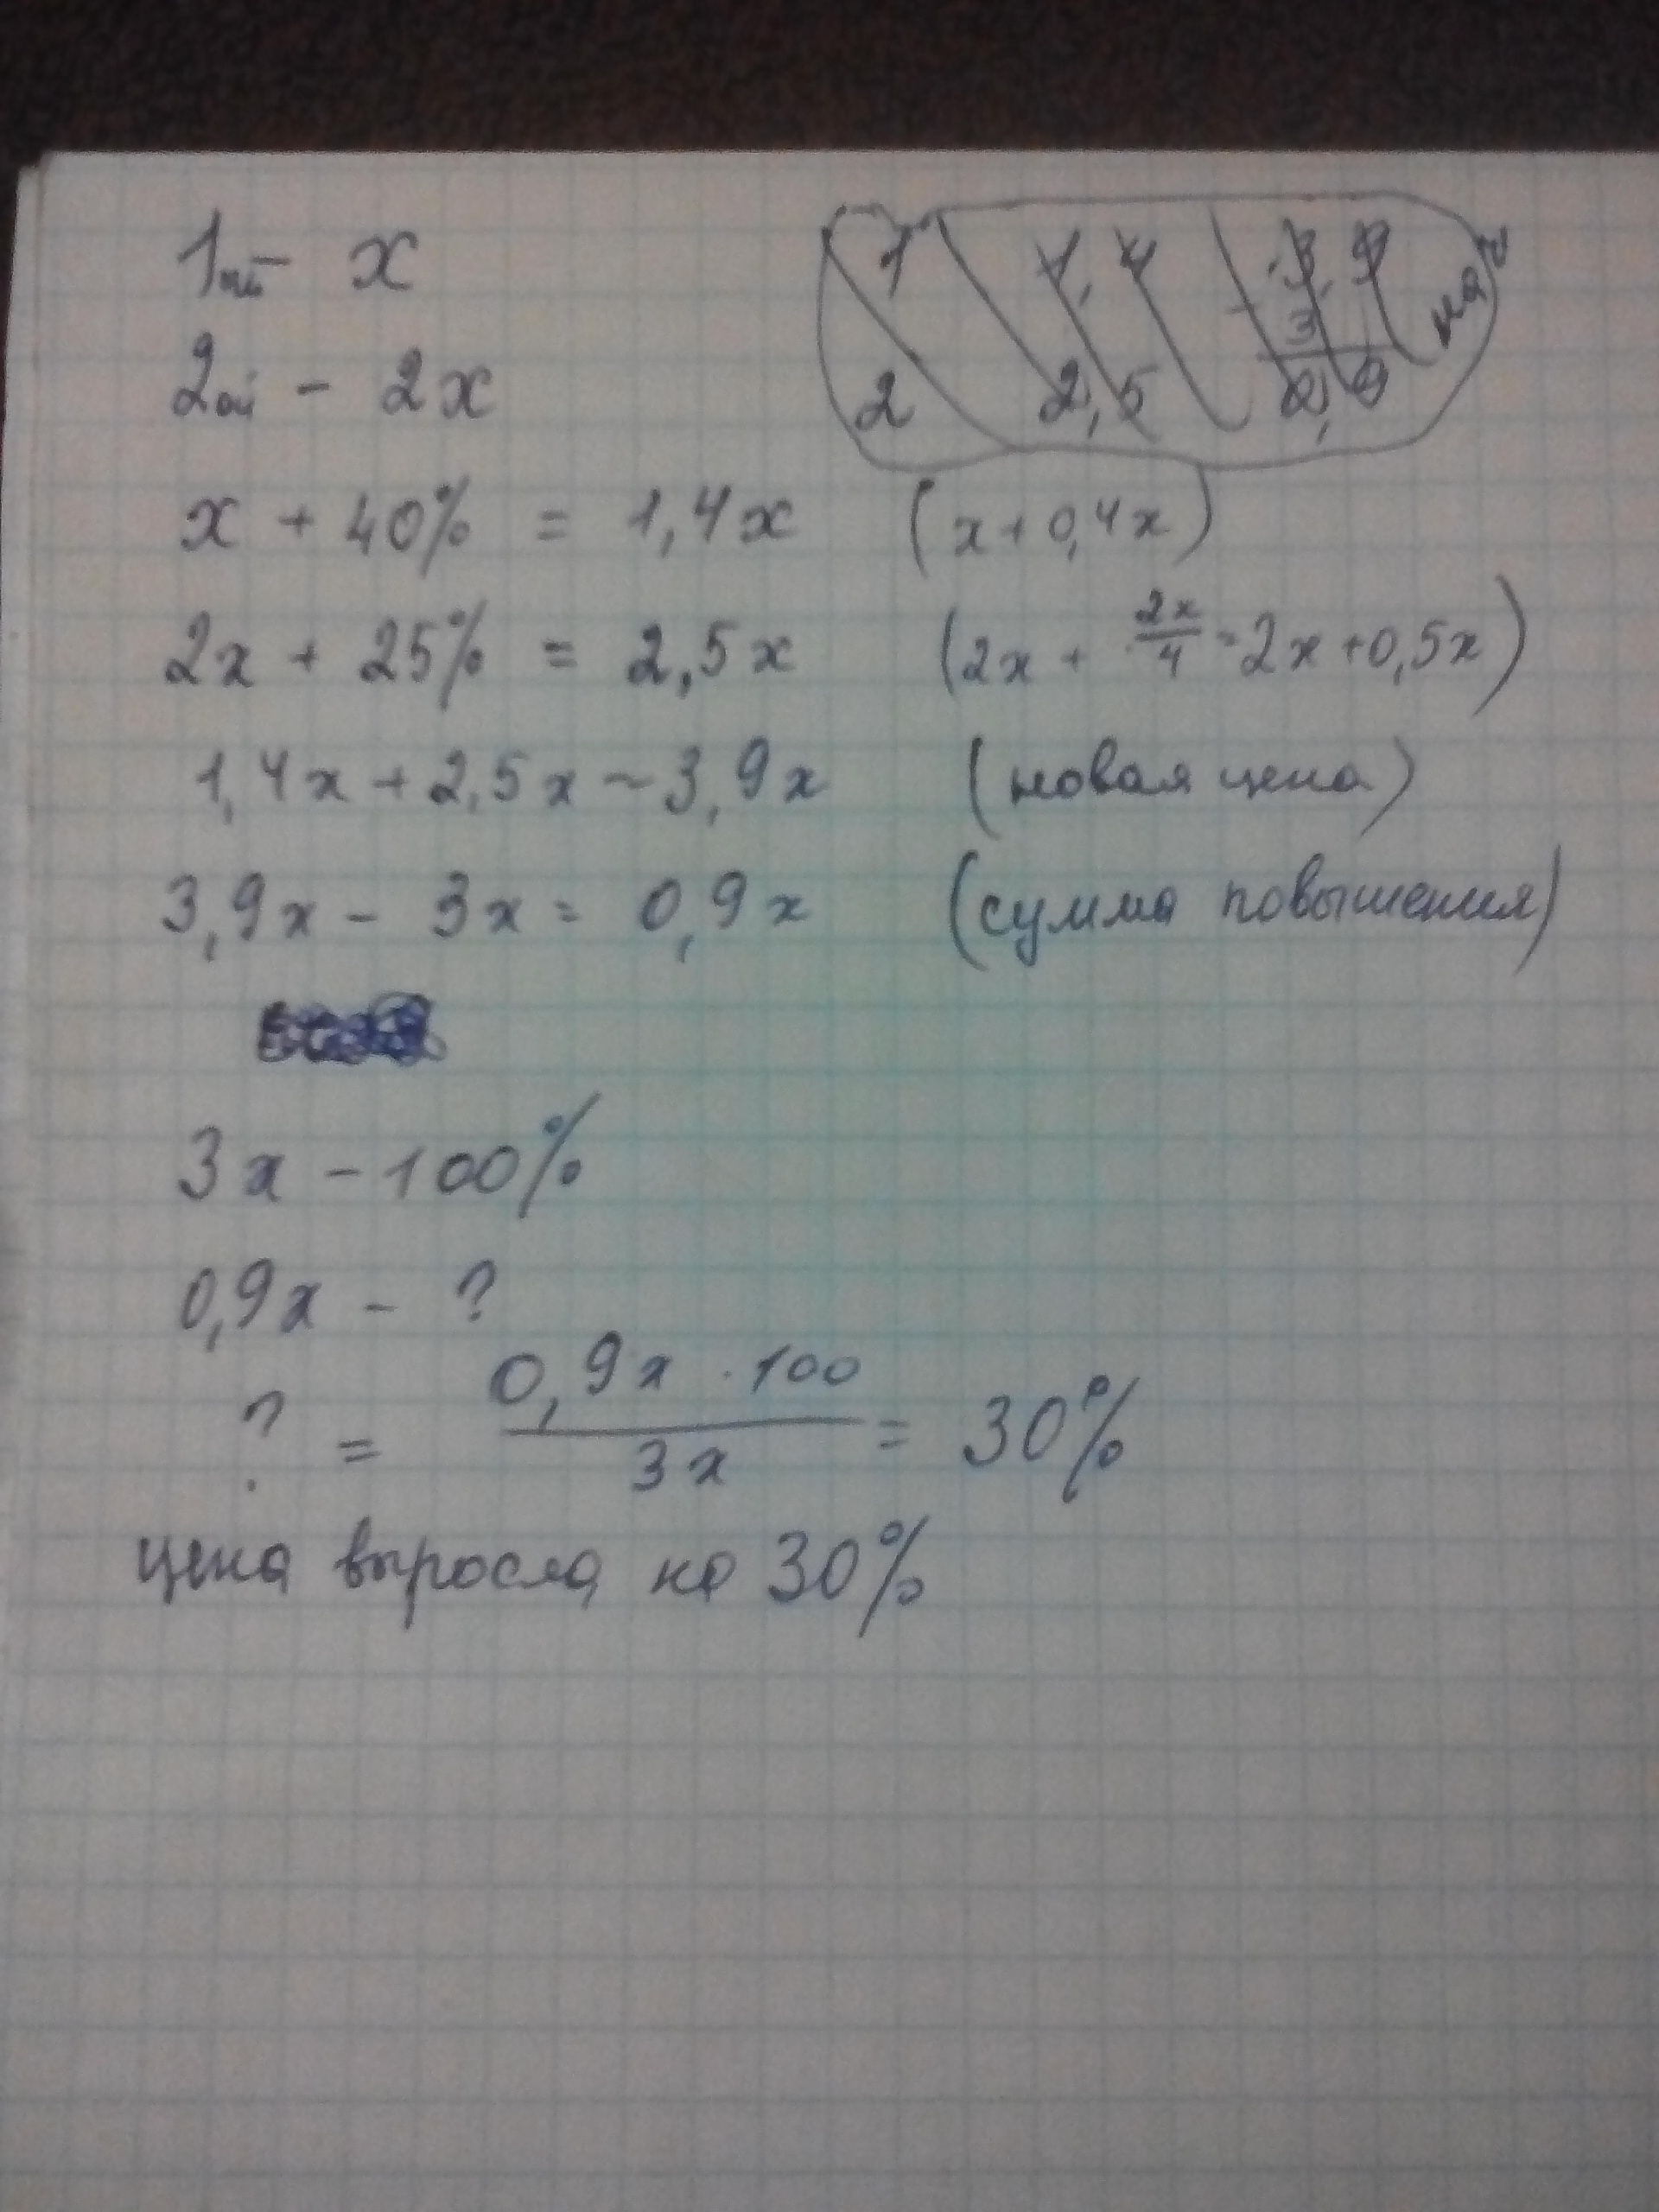 1ый - x
2ой - 2x
1 1,4 3,9
3
2 2,5 0,9
x + 40% = 1,4x (x + 0,4x)
2x + 25% = 2,5x (2x + 2x/4 = 2x + 0,5x)
1,4x + 2,5x - 3,9x (новая цена)
3,9x - 3x = 0,9x (сумма повышения)
3x - 100%
0,9x - ?
? = 0,9x · 100 / 3x = 30%
цена выросла на 30%